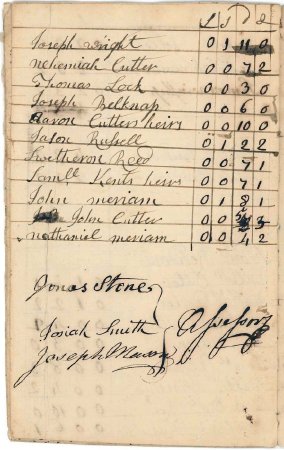 L S D q
Joseph Wright 0 1 11 0
Nehemiah Cutter 0 0 7 2
Thomas Lock 0 0 3 0
Joseph Belknap 0 0 6 0
Aaron Cutters heirs 0 0 10 0
Jason Russell 0 1 2 2
Swetheron Reed 0 0 7 1
Samll Kents heirs 0 0 7 1
John meriam 0 1 8 1
John Cutter 0 0
nathaniel meriam 0 0 4 2
Jonas Stone
Josiah Smith Assessors
Joseph Mason